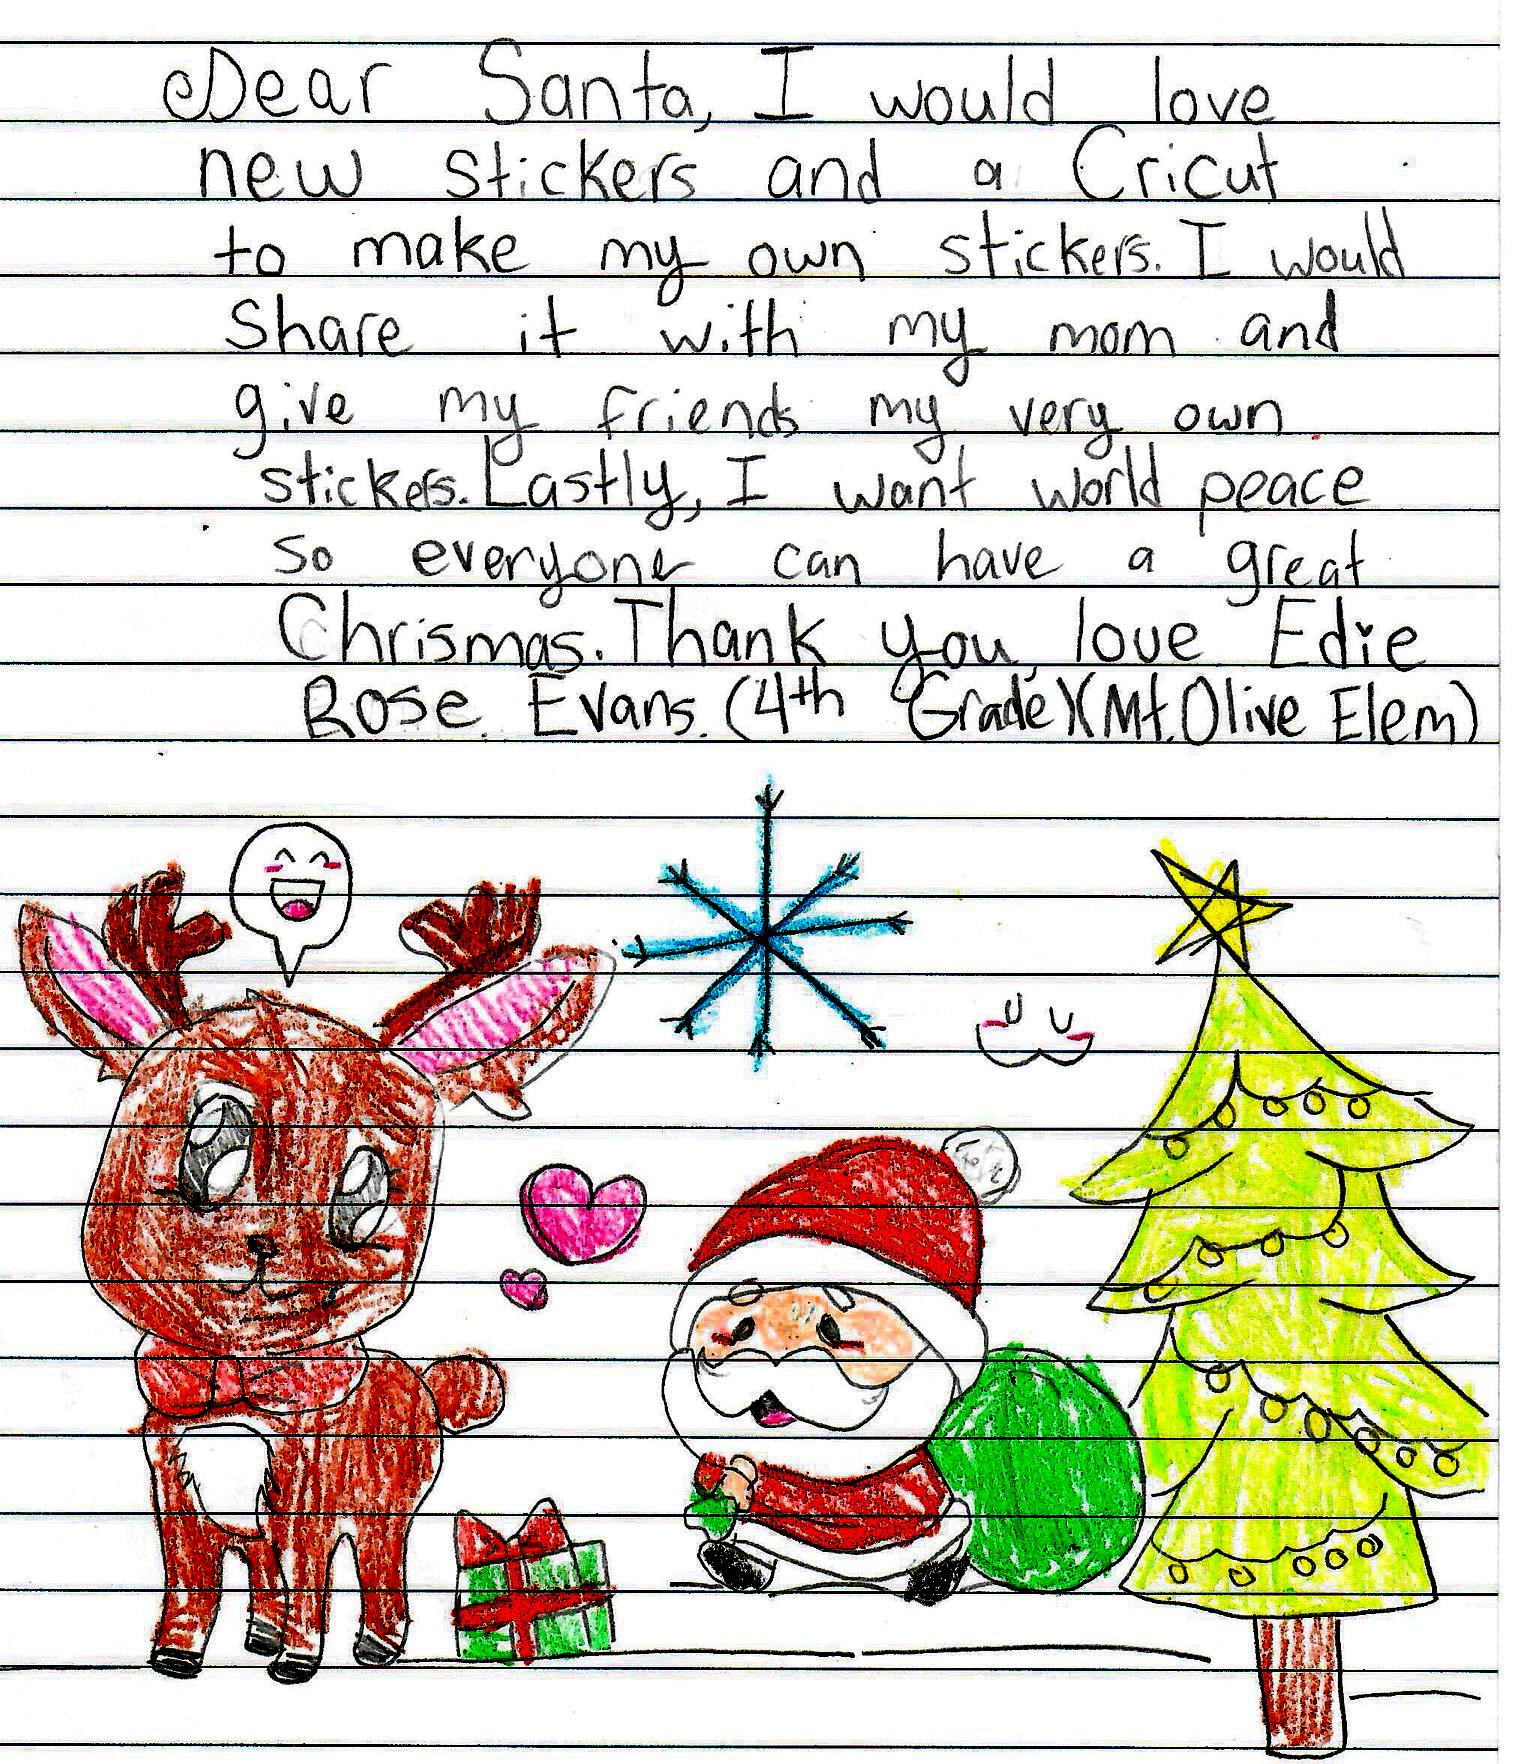 Dear Santa, I would love
new stickers and a Cricut
to make my own stickers. I would
share it with my mom and
give my friends my very own
stickers. Lastly, I want world peace
so everyone can have a great
Chrismas. Thank you, love Edie
Rose Evans. (4th Grade)(Mt. Olive Elem)